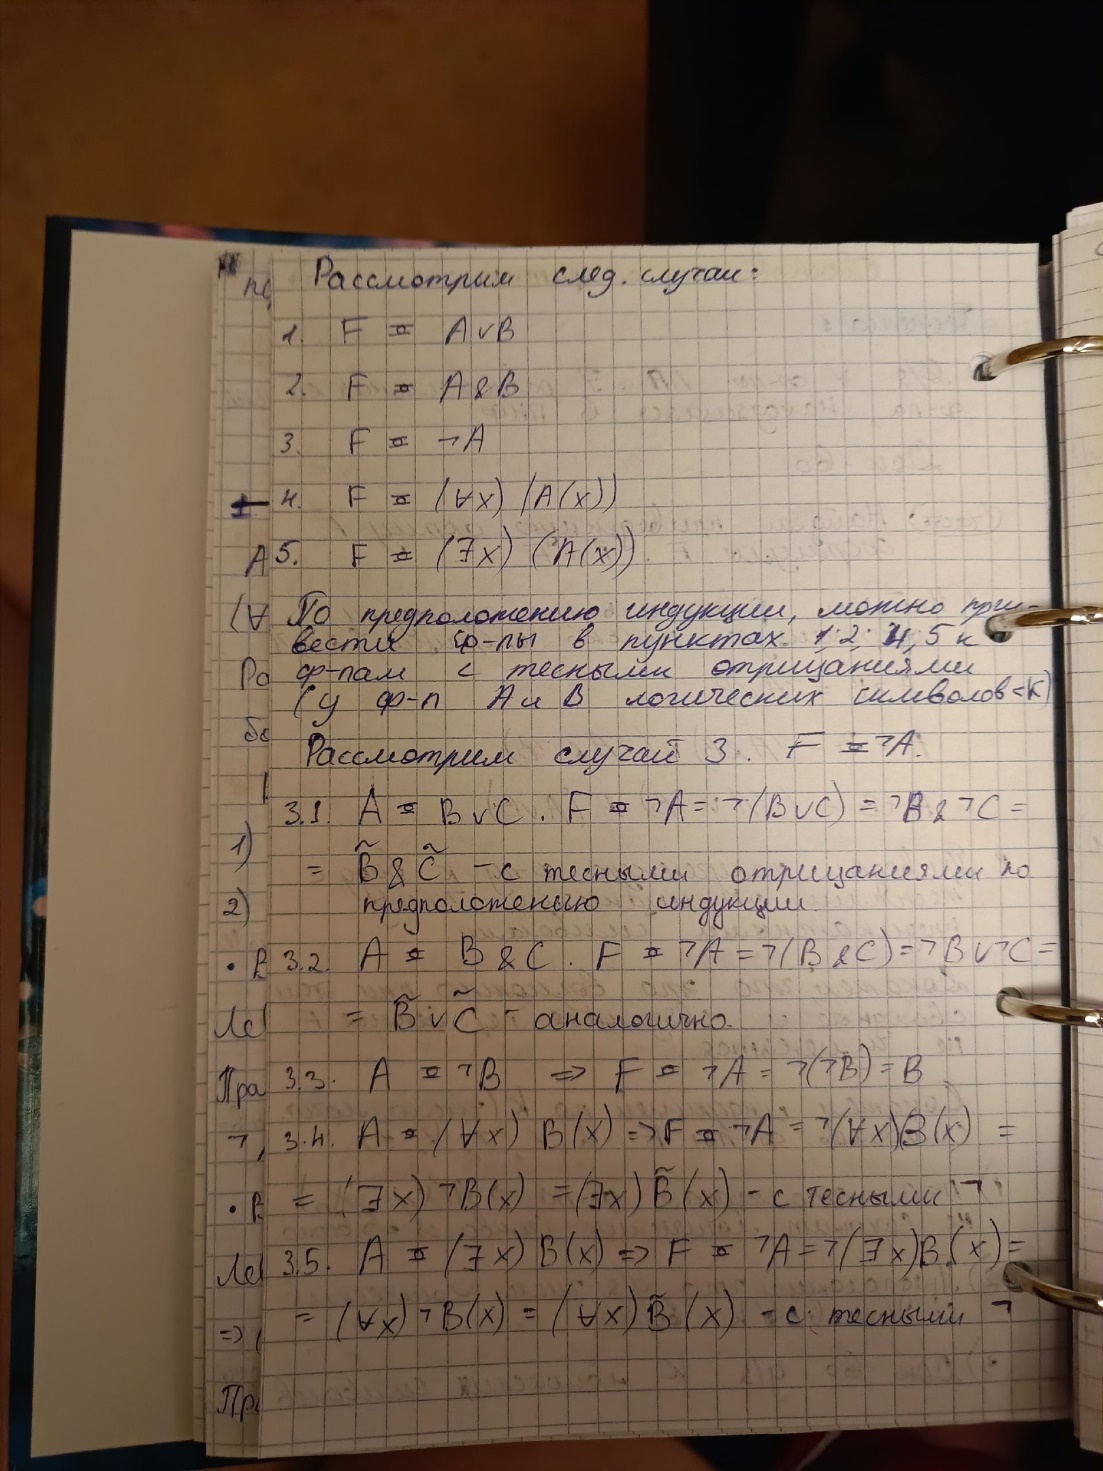 Рассмотрим след. случаи:
1. F ≡ A∨B
2. F ≡ A&B
3. F ≡ ¬A
4. F ≡ (∀x) (A(x))
5. F ≡ (∃x) (A(x))
По предположению индукции, можно при-
вести ф-лы в пунктах 1, 2, 4, 5 к
ф-лам с тесными отрицаниями
(у ф-л A и B логических символов <K)
Рассмотрим случай 3. F ≡ ¬A.
3.1. A ≡ B∨C. F ≡ ¬A = ¬(B∨C) = ¬B&¬C =
= B̃&C̃ - с тесными отрицаниями по
предположению индукции
3.2. A ≡ B&C. F ≡ ¬A = ¬(B&C) = ¬B∨¬C =
= B̃∨C̃ - аналогично.
3.3. A ≡ ¬B ⇒ F ≡ ¬A = ¬(¬B) = B
3.4. A ≡ (∀x) B(x) ⇒ F ≡ ¬A = ¬(∀x)B(x) =
= (∃x) ¬B(x) = (∃x) B̃(x) - с тесными ¬
3.5. A ≡ (∃x) B(x) ⇒ F ≡ ¬A = ¬(∃x)B(x) =
= (∀x) ¬B(x) = (∀x) B̃(x) - с тесными ¬